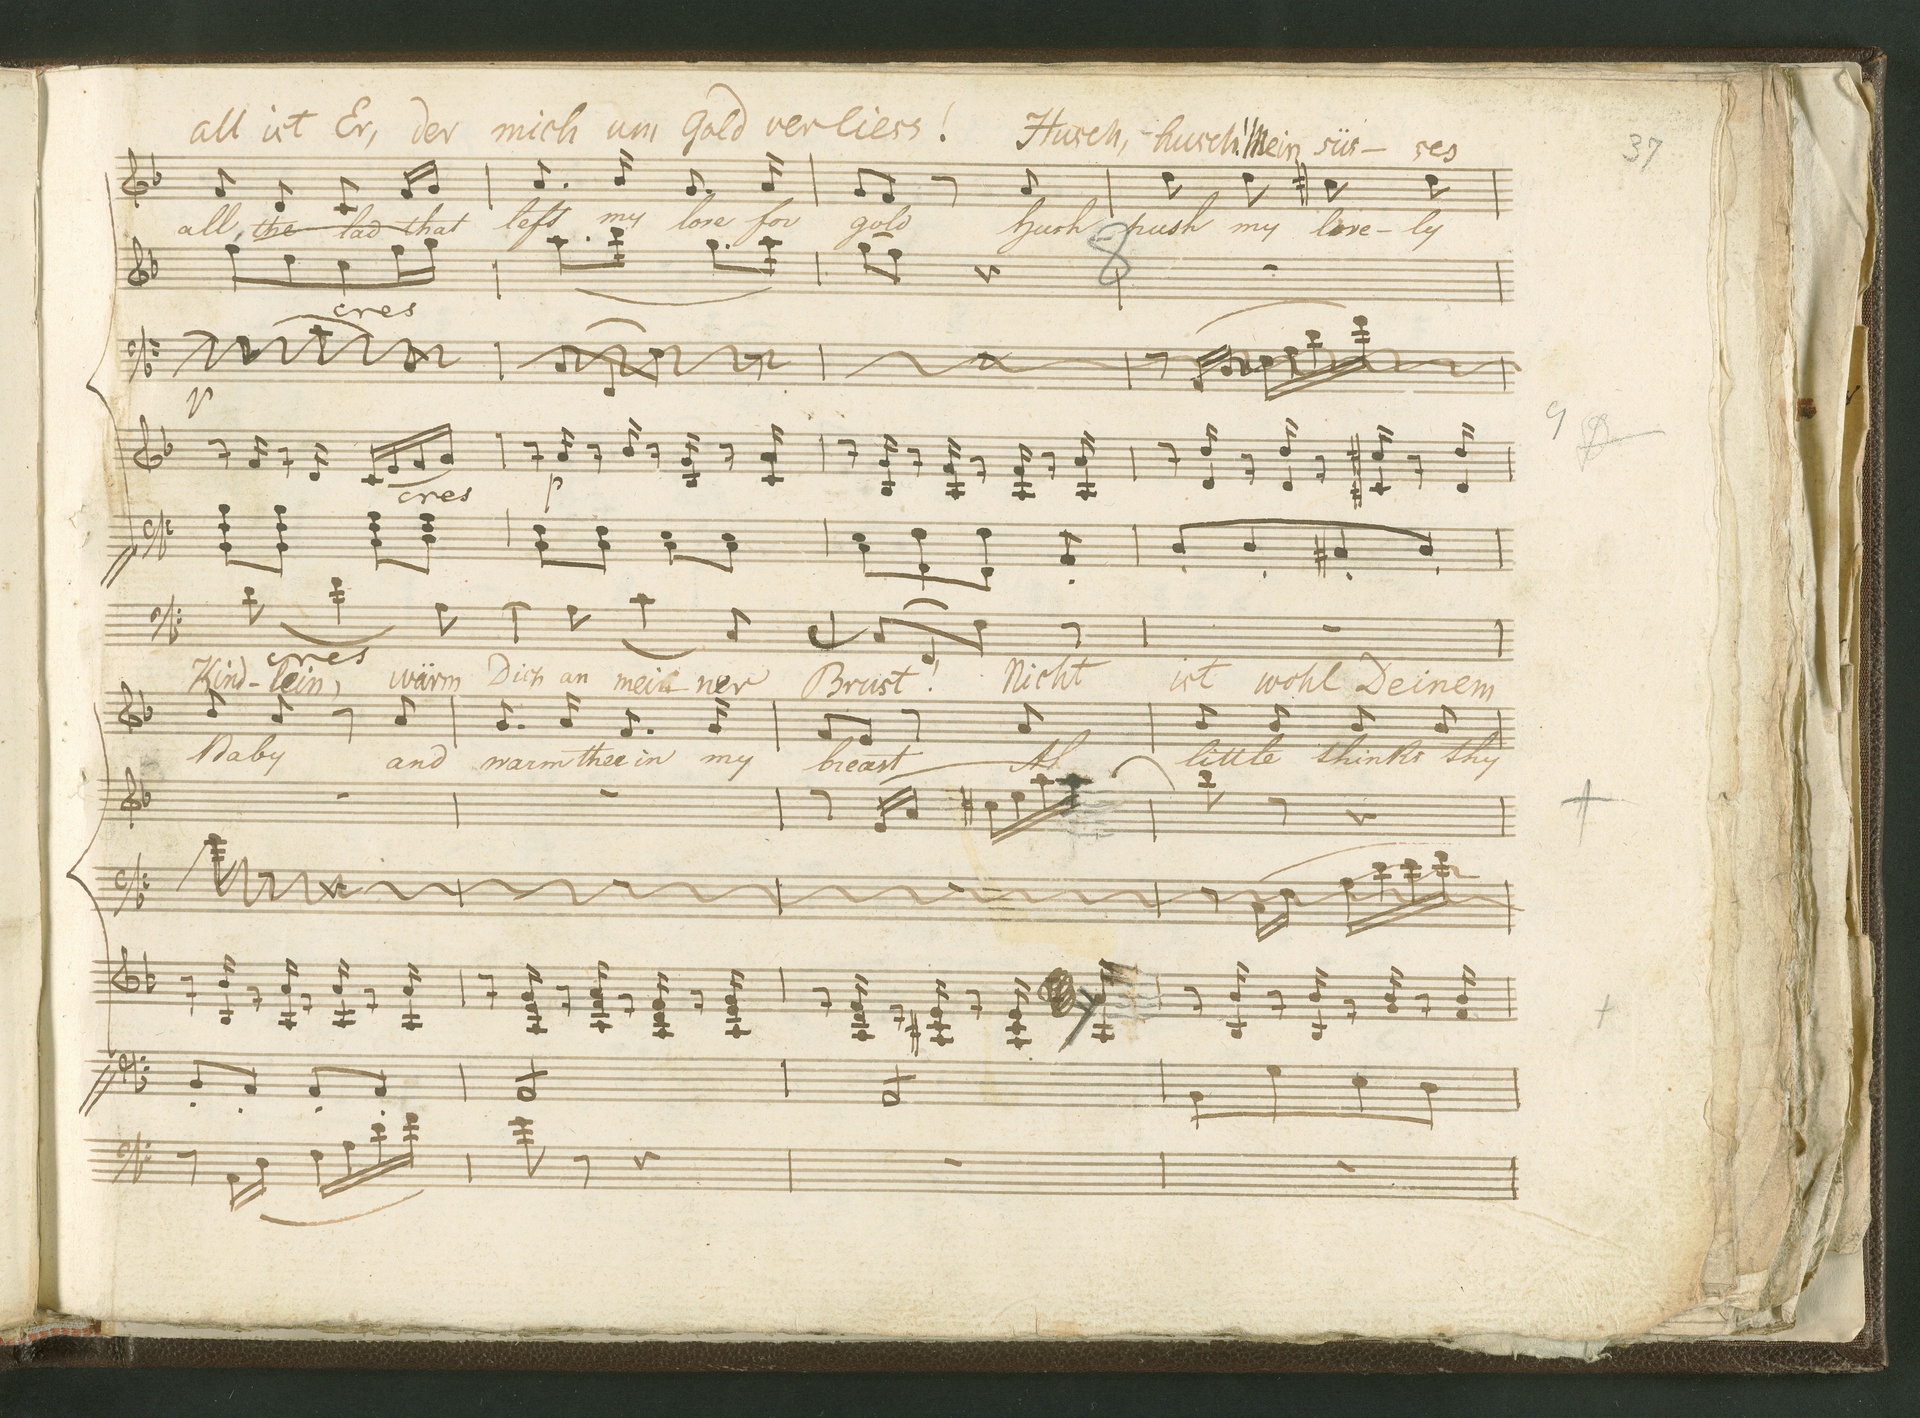 all ist Er, der mich um Gold verliess! Husch, husch! Mein süs- ses
37
all, the lad that left my love for gold hush hush my love- ly
8
cres
p
9
cres p
cres
Kind- lein, wärm Dich an mei- ner Brust! Nicht ist wohl Deinem
Baby and warm thee in my breast Ah little thinks thy